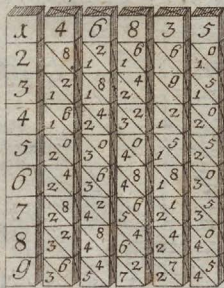 x 4 6 8 3 5
2 8 1 2 1 6 6 1 0
3 1 2 1 8 2 4 9 1 5
4 1 6 2 4 3 2 1 2 2 0
5 2 0 3 0 4 0 1 5 2 5
6 2 4 3 6 4 8 1 8 3 0
7 2 8 4 2 5 6 2 1 3 5
8 3 2 4 8 6 4 2 4 4 0
9 3 6 5 4 7 2 2 7 4 5